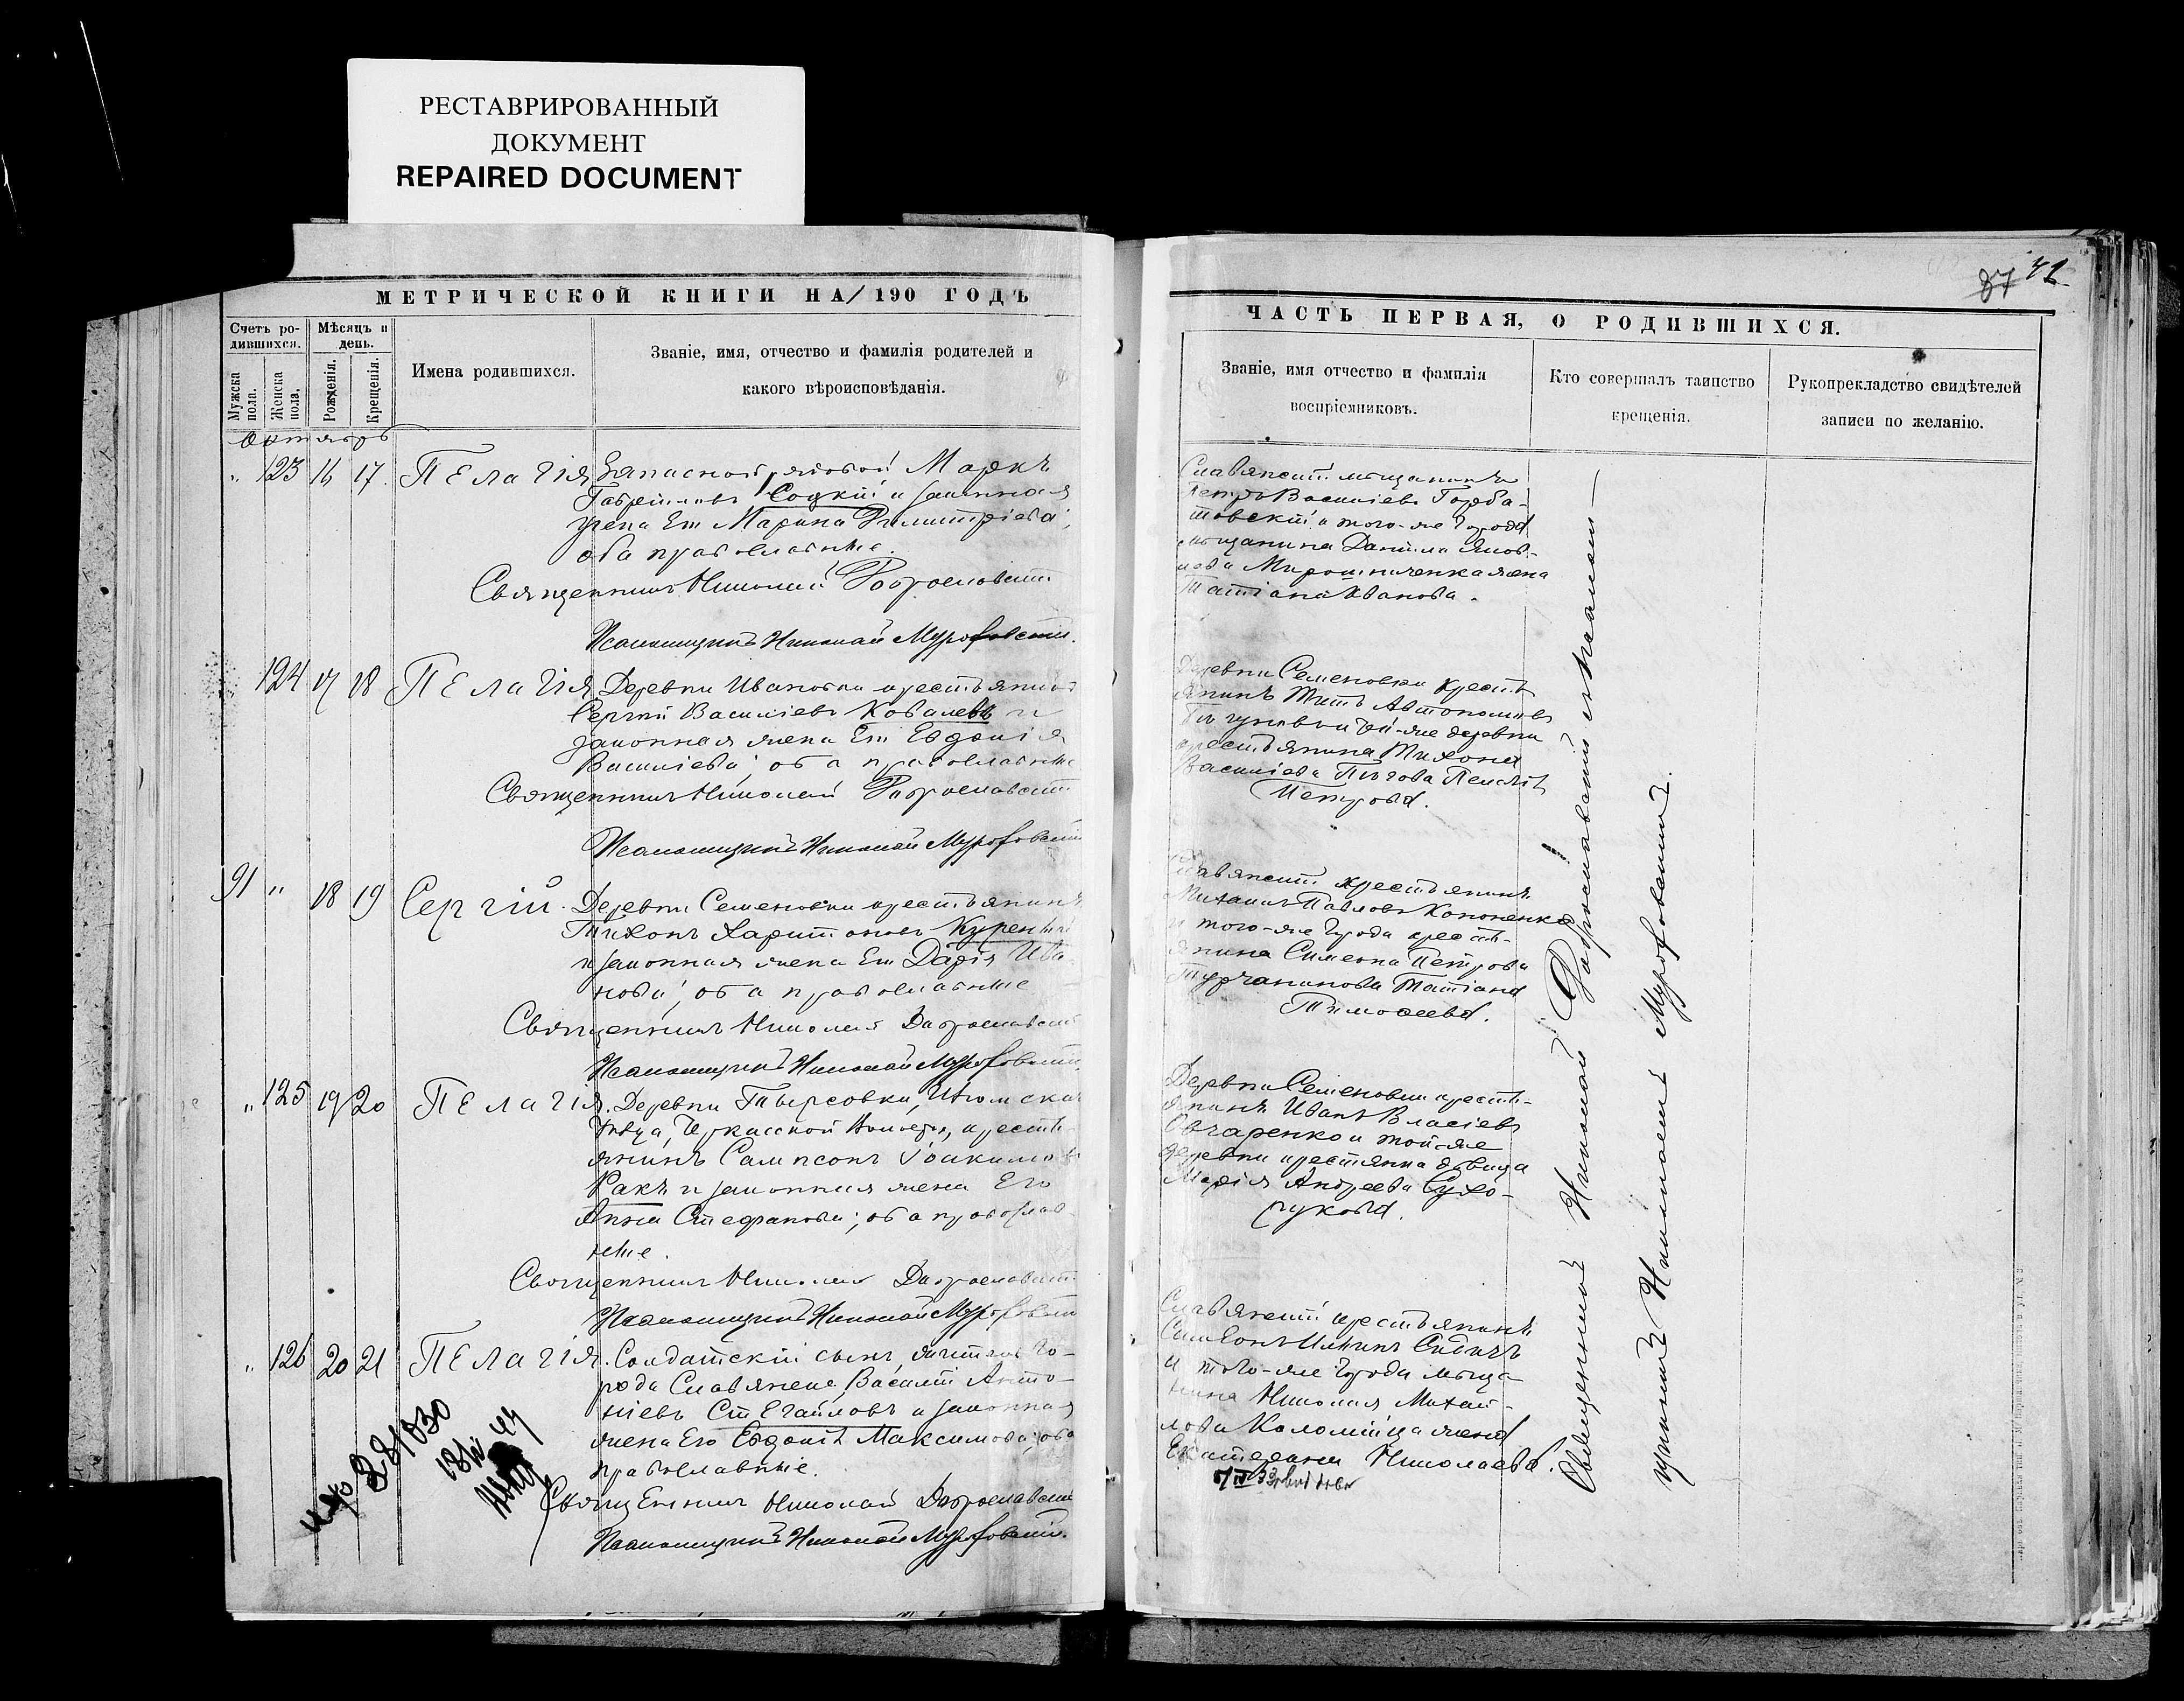 РЕСТАВРИРОВАННЫЙ
ДОКУМЕНТ
REPAIRED DOCUMENT
МЕТРИЧЕСКОЙ КНИГИ НА/190 ГОДЪ
Счетъ ро-
дившихся.
Мѣсяцъ и
день.
Мужска
пола.
Женска
пола.
Рожденія.
Крещенія.
Имена родившихся.
Званіе, имя, отчество и фамилія родителей и
какого вѣроисповѣданія.
Октябрь
" 123 16 17. Пелагія Запасной рядовой Маркъ
Гавріиловъ Соцкій и законная
жена Его Марина Димитріева;
оба православные.
Священникъ Николай Доброславскій
Псаломщикъ Николай Мурофовскій.
124 17 18 Пелагія. Деревни Ивановки крестьянинъ
Сергій Василіевъ Ковалевъ и
законная жена Его Евдокія
Василіева; оба православные
Священникъ Николай Доброславскій
Псаломщикъ Николай Мурофовскій
91 " 18 19 Сергій. Деревни Семеновки крестьянинъ
Тихонъ Харитоновъ Куренный
и законная жена Его Дарія Ива
нова; оба православные
Священникъ Николай Доброславскій
Псаломщикъ Николай Мурофовскій.
" 125 19 20 Пелагія. Деревни
крестья
янинъ Сампсонъ Іоакимовъ
Ракъ и законная жена Его
Анна Стефанова; оба православ
ные.
Священникъ Николай Доброславскій
Псаломщикъ Николай Мурофовскій
" 126 20 21 Пелагія. Солдатскій сынъ, житель го-
рода Славянска Василій Анто-
ніевъ Стегайловъ и законная
жена Его Евдокія Максимова; оба
православные.
Священникъ Николай Доброславскій
Псаломщикъ Николай Мурофовскій.
87 42
ЧАСТЬ ПЕРВАЯ, О РОДИВШИХСЯ.
Званіе, имя отчество и фамилія
воспріемниковъ.
Кто совершалъ таинство
крещенія.
Рукоприкладство свидѣтелей
записи по желанію.
Славянскій мѣщанинъ
Петръ Василіевъ Горба-
товскій и того-же города
мѣщанина Даніила Яков-
лева Мирошниченка жена
Татіана Иванова.
Деревни Семеновки кресть
янинъ Титъ Автономовъ
и той-же деревни
крестьянина Тихона
Василіева
Петрова.
Славянскій крестьянинъ
Михаилъ Павловъ Кононенко
и того-же города кресть-
янина Симеона Петрова
Турчанинова Татіана
Тимофеева.
Деревни Семеновки кресть-
янинъ Иванъ Власіевъ
Овчаренко и той-же
деревни крестьянка дѣвица
Марія Андреева Сухо-
рукова.
Славянскій крестьянинъ
Симеонъ
и того-же города мѣща-
нина Николая Михай-
лова Коломійца жена
Екатерина Николаева.
Священникъ Николай Доброславскій съ псалом-
щикомъ Николаемъ Мурофовскимъ.